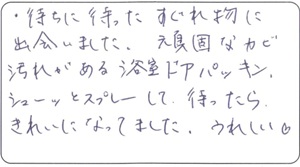 ・待ちに待ったすぐれ物に
出会いました。頑固なカビ
汚れがある浴室ドアパッキン、
シューッとスプレーして、待ったら
きれいになってました。うれしい♡